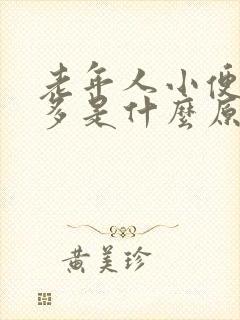 老年人小便
多是什麼原
黄美珍